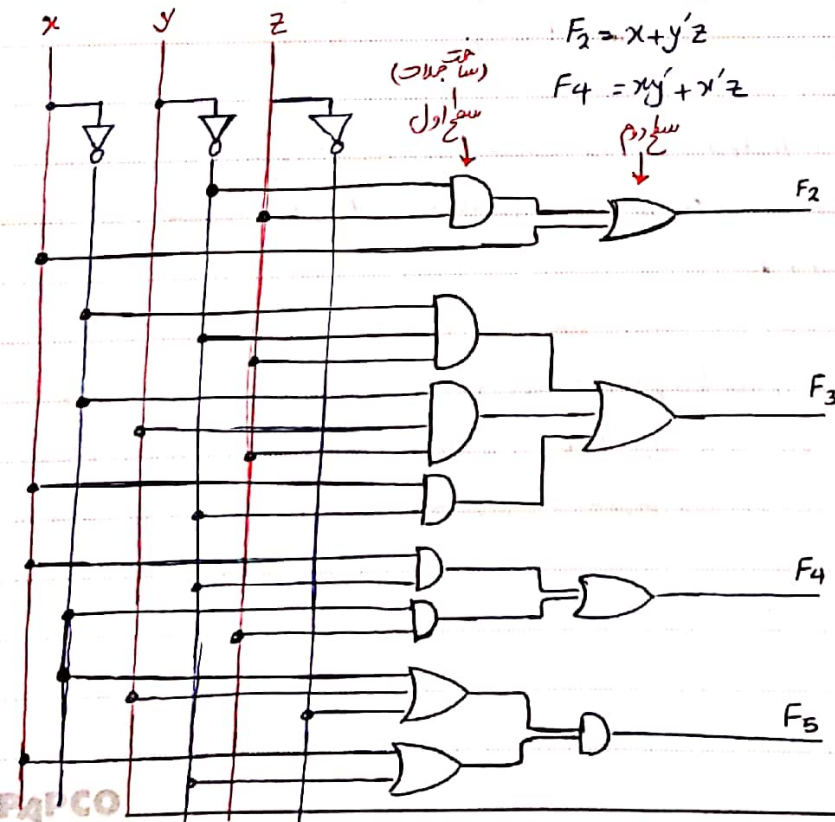 x y z
F₂ = x + y′z
F4 = xy′ + x′z
(ساخت جملات)
سطح اول
سطح دوم
F₂
F₃
F₄
F₅
PAPCO